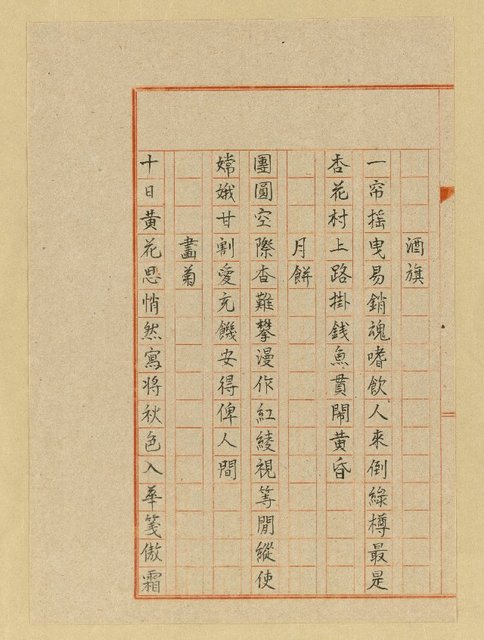 酒旗
一帘搖曳易銷魂嗜飲人來倒綠樽最是
杏花村上路掛錢魚貫閙黃昏
月餅
團圓空際杳難攀漫作紅綾視等閒縱使
嫦娥甘割愛充饑安得俾人間
畫菊
十日黃花思悄然寫將秋色入華箋傲霜